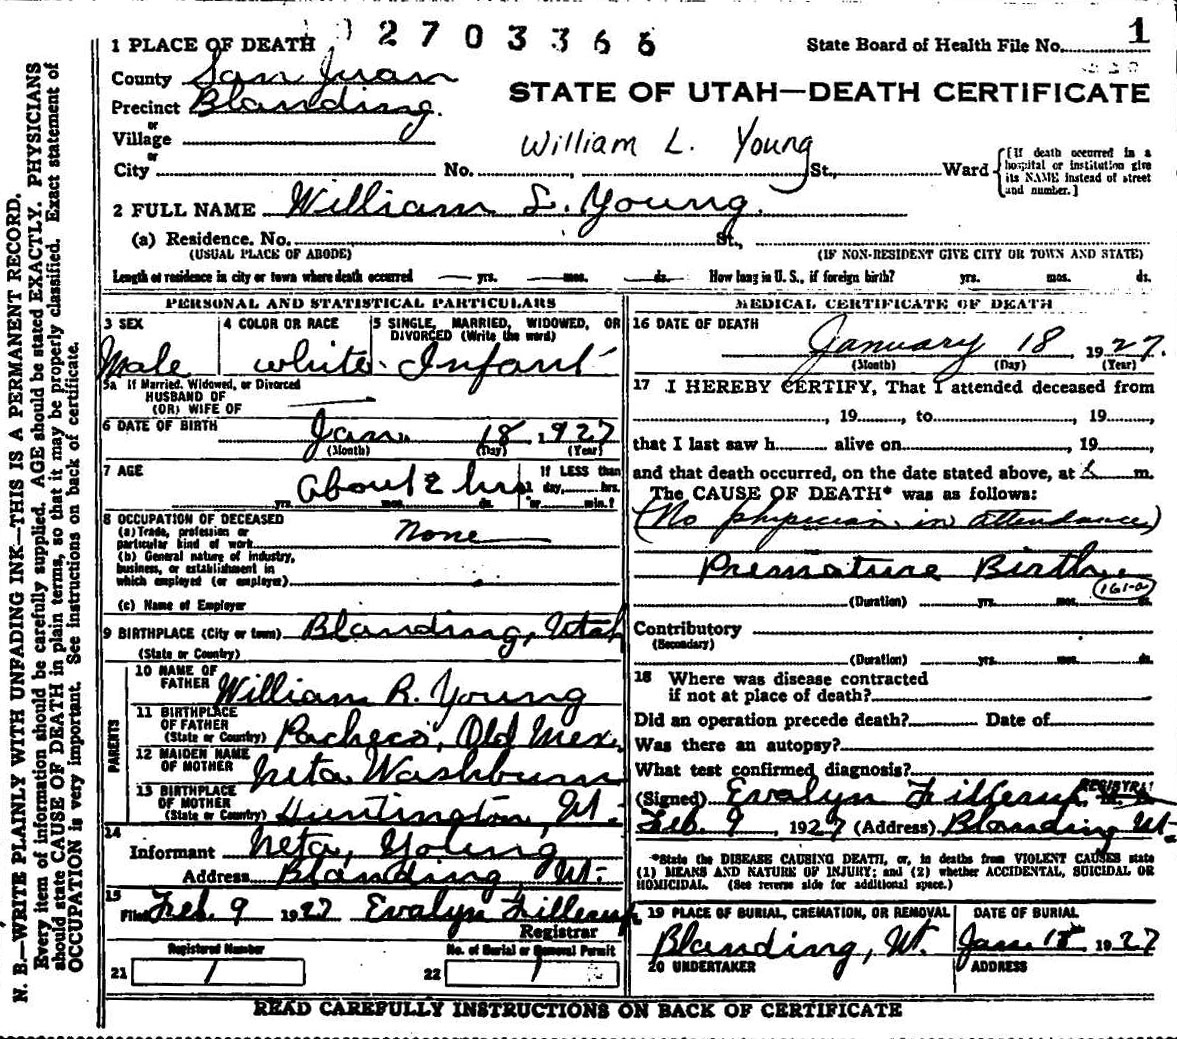 2703366
1
1 PLACE OF DEATH
State Board of Health File No.
County San Juan
STATE OF UTAH—DEATH CERTIFICATE
Precinct Blanding.
or
Village
William L. Young
or
City No. St., Ward
[If death occurred in a hospital or institution give its NAME instead of street and number.]
2 FULL NAME William L. Young.
(a) Residence. No. St.,
(USUAL PLACE OF ABODE) (IF NON-RESIDENT GIVE CITY OR TOWN AND STATE)
Length of residence in city or town where death occurred yrs. mos. ds. How long in U. S., if foreign birth? yrs. mos. ds.
PERSONAL AND STATISTICAL PARTICULARS
3 SEX
Male
4 COLOR OR RACE
white
5 SINGLE, MARRIED, WIDOWED, OR DIVORCED (Write the word)
Infant
5a If Married, Widowed, or Divorced
HUSBAND OF
(OR) WIFE OF
6 DATE OF BIRTH Jan. 18 1927
(Month) (Day) (Year)
7 AGE About 2 hrs
yrs. mos. ds.
If LESS than
1 day, hrs.
or min.?
8 OCCUPATION OF DECEASED
(a) Trade, profession or
particular kind of work None
(b) General nature of industry,
business, or establishment in
which employed (or employer)
(c) Name of Employer
9 BIRTHPLACE (City or town) Blanding, Utah
(State or Country)
PARENTS
10 NAME OF
FATHER William R. Young
11 BIRTHPLACE
OF FATHER
(State or Country) Pacheco, Old Mex.
12 MAIDEN NAME
OF MOTHER Neta Washburn
13 BIRTHPLACE
OF MOTHER
(State or Country) Huntington, Ut.
14
Informant Neta, Young
Address Blanding, Ut.
15
Filed Feb. 9 1927 Evalyn Fillerup
Registrar
Registered Number
21 1
No. of Burial or Removal Permit
22 1
MEDICAL CERTIFICATE OF DEATH
16 DATE OF DEATH
January 18, 1927.
(Month) (Day) (Year)
17 I HEREBY CERTIFY, That I attended deceased from
, 19 , to , 19 ,
that I last saw h alive on , 19
and that death occurred, on the date stated above, at m.
The CAUSE OF DEATH* was as follows:
(No physician in attendance)
Premature Birth.
161-a
(Duration) yrs. mos. ds.
Contributory
(Secondary)
(Duration) yrs. mos. ds.
18 Where was disease contracted
if not at place of death?
Did an operation precede death? Date of
Was there an autopsy?
What test confirmed diagnosis?
(Signed) Evalyn Fillerup REGISTRAR M. D.
Feb. 9, 1927 (Address) Blanding Ut.
*State the DISEASE CAUSING DEATH, or, in deaths from VIOLENT CAUSES state
(1) MEANS AND NATURE OF INJURY; and (2) whether ACCIDENTAL, SUICIDAL OR
HOMICIDAL. (See reverse side for additional space.)
19 PLACE OF BURIAL, CREMATION, OR REMOVAL
Blanding, Ut.
DATE OF BURIAL
Jan. 18 1927
20 UNDERTAKER
ADDRESS
READ CAREFULLY INSTRUCTIONS ON BACK OF CERTIFICATE
N. B.—WRITE PLAINLY WITH UNFADING INK—THIS IS A PERMANENT RECORD.
Every item of information should be carefully supplied. AGE should be stated EXACTLY. PHYSICIANS
should state CAUSE OF DEATH in plain terms, so that it may be properly classified. Exact statement of
OCCUPATION is very important. See instructions on back of certificate.